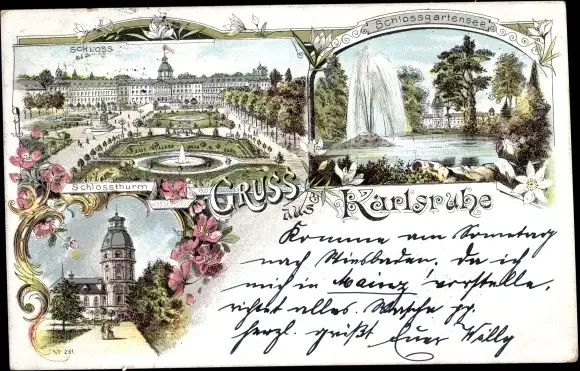 SCHLOSS
Schlossgartensee
Schlossthurm
GRUSS
aus Karlsruhe
Komme am Sonntag
nach Wiesbaden, da ich
mich in Mainz vorstelle,
richtet alles. Wäsche pp.
herzl. grüßt Euer Willy
N° 281.